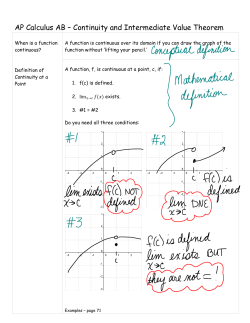 AP Calculus AB – Continuity and Intermediate Value Theorem
When is a function continuous?
A function is continuous over its domain if you can draw the graph of the function without 'lifting your pencil.' Conceptual definition
Definition of Continuity at a Point
A function, f, is continuous at a point, c, if:
1. f(c) is defined.
2. lim x→c f(x) exists.
3. #1 = #2
Mathematical definition
Do you need all three conditions:
#1
c
lim exists
x→c
f(c) NOT defined
#2
c
f(c) is defined
lim DNE
x→c
#3
c
f(c) is defined
lim exists BUT
x→c
they are not =!
Examples – page 71